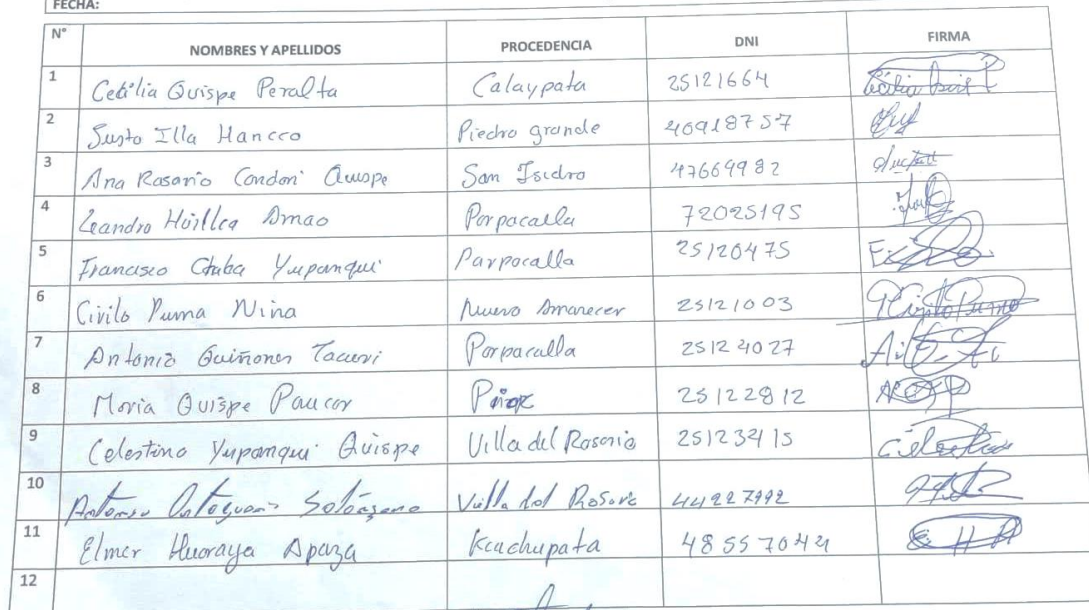 FECHA:
N° NOMBRES Y APELLIDOS PROCEDENCIA DNI FIRMA
1 Cecilia Quispe Peralta Calaypata 25121664
2 Justo Illa Hancco Piedra grande 40918757
3 Ana Rosario Condori Quispe San Isidro 47669982
4 Leandro Huillca Amao Parpacalla 72025195
5 Francisco Chaba Yupanqui Parpacalla 25120475
6 Civilo Puma Nina Nuevo Amanecer 25121003
7 Antonio Quiñones Tacuri Parpacalla 25124027
8 Maria Quispe Paucar 25122812
9 Celestino Yupanqui Quispe Villa del Rosario 25123415
10 Antonio Solórzano Villa del Rosario 44227992
11 Elmer Huaraya Apaza Kcachupata 48557044
12